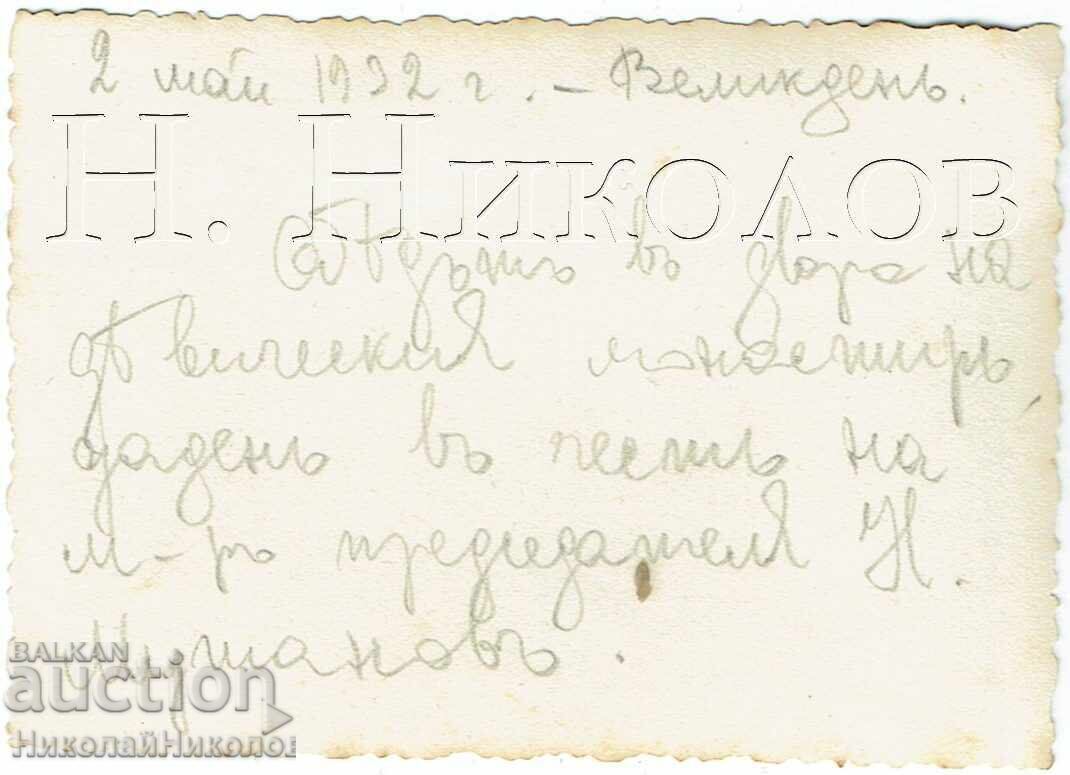 2 май 1932 г. – Великдень.
Н. Николов
Обѣдътъ въ двора на
дѣвическия монастирь,
даденъ въ честь на
м-ръ председателя Н.
Мушановъ.
BALKAN
auction
НиколайНиколов